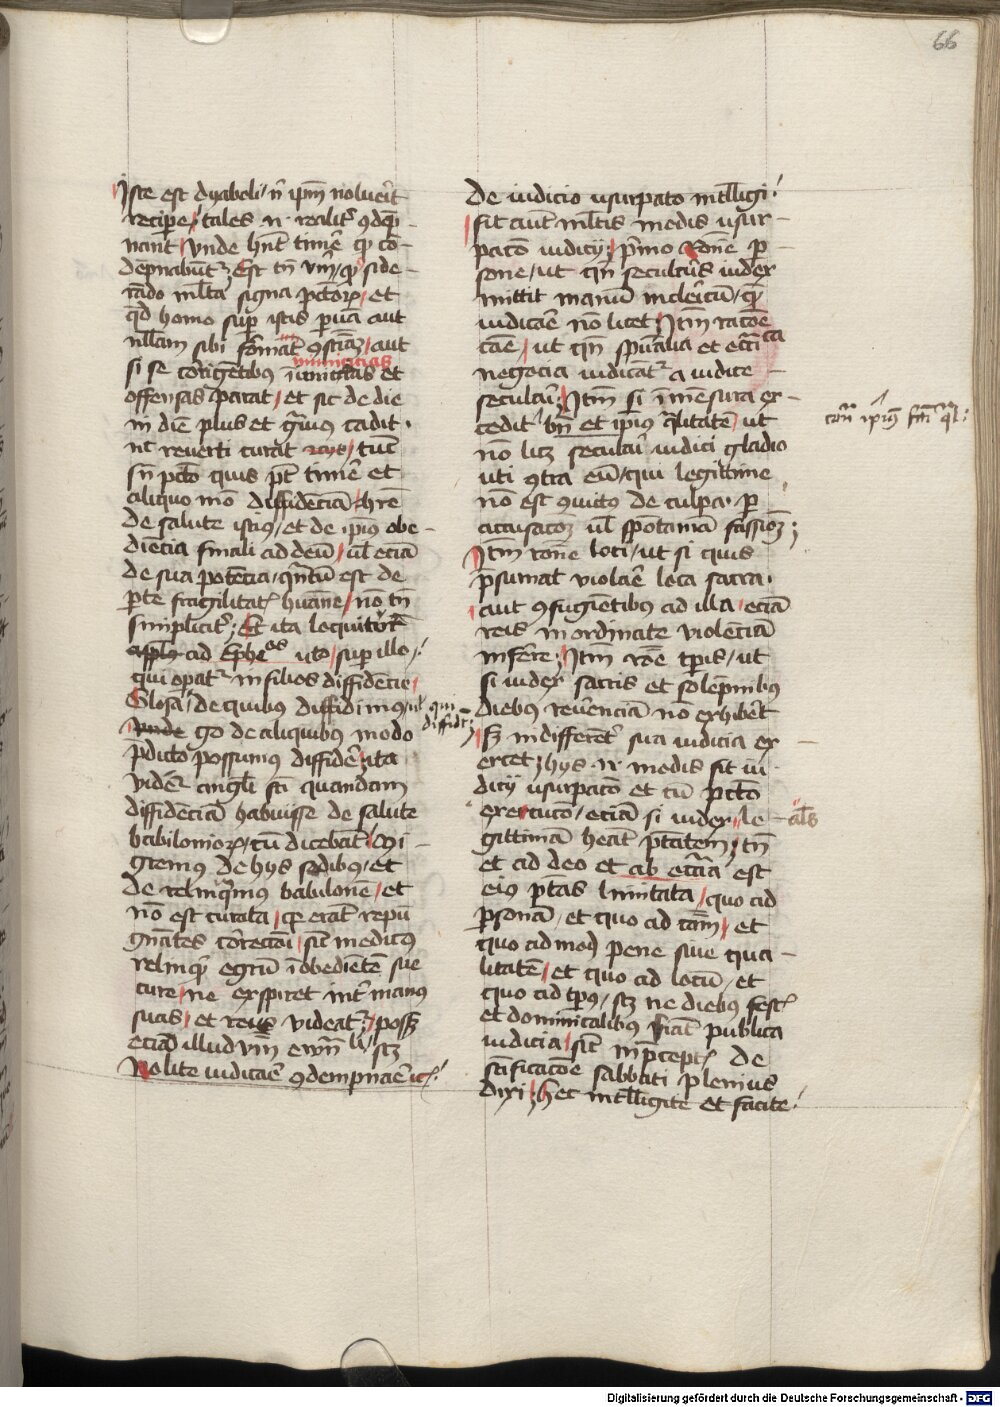 66
Iste est dyaboli / nr̄ ip̄m noluerīt
recipe / tales nr realitr̄ ꝯdēp
nant / vnde hn̄t timē qꝫ cō
dēpnabūtr / Est tn̄ vnū / qꝫ side
rādo ml̄ta signa pctōꝝ / et
qd homo sup̄ istis pauca aut
nullam sibi format ꝯsciāꝫ / aut
si se corrigētibus inimicitias et
offensas parat / et sic de die
in diē plus et grauiꝰ cadit
nec reuerti curat / tūc
sn̄ pctō quis pt̄ timē et
aliquo mō diffidēciā hr̄e
de salute istiꝰ / et de ip̄ius obe
diencia finali ad deū / ul̄ eciā
de sua potēcia / qn̄tū est de
pte fragilitatꝭ huāne / nō tn̄
simplicitr̄ / Et ita loquitur
ap̄lus ad Ephēos ijto / sup illo /
qui opatr̄ in filios diffidēcie
Glosa / de quibus diffidimꝰ ul̄ qui
diffidt̄
go de aliquibus modo
pdicto possumꝰ diffidē / ita
vidētr angl̄i sc̄i quandam
diffidēciā habuisse de salute
babiloniorꝝ / cū dicebāt / Mi
gremꝰ de hijs sedibus / et
derelinqꝰmus babilonē / et
nō est curata / qꝫ erāt repu
gnātes correctōi / sic̄ medicꝰ
relinqt̄ egrū ĩobedientē sue
cure / ne exspiret int̄ manus
suas / et reus videatr̄ / possꝫ
eciā illud vm̄ ewn̄li / scꝫ
Nolite iudicare ꝯdempnare ic̄ꝭ
De iudicio usurpato intelligi /
Fit aut ml̄tis modis usur
patō iudicij / primo rōne p
sone / ut qn̄ seculāis iudex
mittit manū in clericū / quē
iudicare nō licet / Itm̄ racōe
cāe / ut qn̄ spūalia et ecc̄iāca
negocia iudicatr̄ a iudice
seculari / Itm̄ si in mensura ex
cedit / bn̄ et ip̄ius q̄litatē / ut
cām ip̄ius s̄m ql̄
nō licꝫ seculari iudici gladio
uti ꝯtra eū / qui legittime
nō est ꝯuictꝰ de culpa p
accusatoꝝ ul̄ spōtaneā fassionꝫ /
Itm̄ rōne loci / ut si quis
p̄sumat violare loca sacra
aut ꝯfugiētibus ad illa / eciā
reis inordinate violenciā
inferre / Itm̄ rōe tp̄is / ut
si iudex sacris et solempnibꝰ
diebus reuerēciā nō exhibet
sꝫ indifferent̄ sua iudicia ex
ercet / hijs nr modis fit iu
dicij usurpacō et cū pctō
exercico / eciā si iudex / le als
gittimā heat ptātem / tn̄
et ad deo et ab ecc̄ia est
eiꝰ ptās limitata / quo ad
psonā / et quo ad cām / et
quo ad modū pene siue qua
litatē / et quo ad locū / et
quo ad tp̄us / scꝫ ne diebus festꝭ
et dominicalibus fiat publica
iudicia / sic̄ in p̄ceptꝭ de
sc̄ificacōe sabbati plenius
dixi / Hec intelligite et facite /
Digitalisierung gefördert durch die Deutsche Forschungsgemeinschaft - DFG